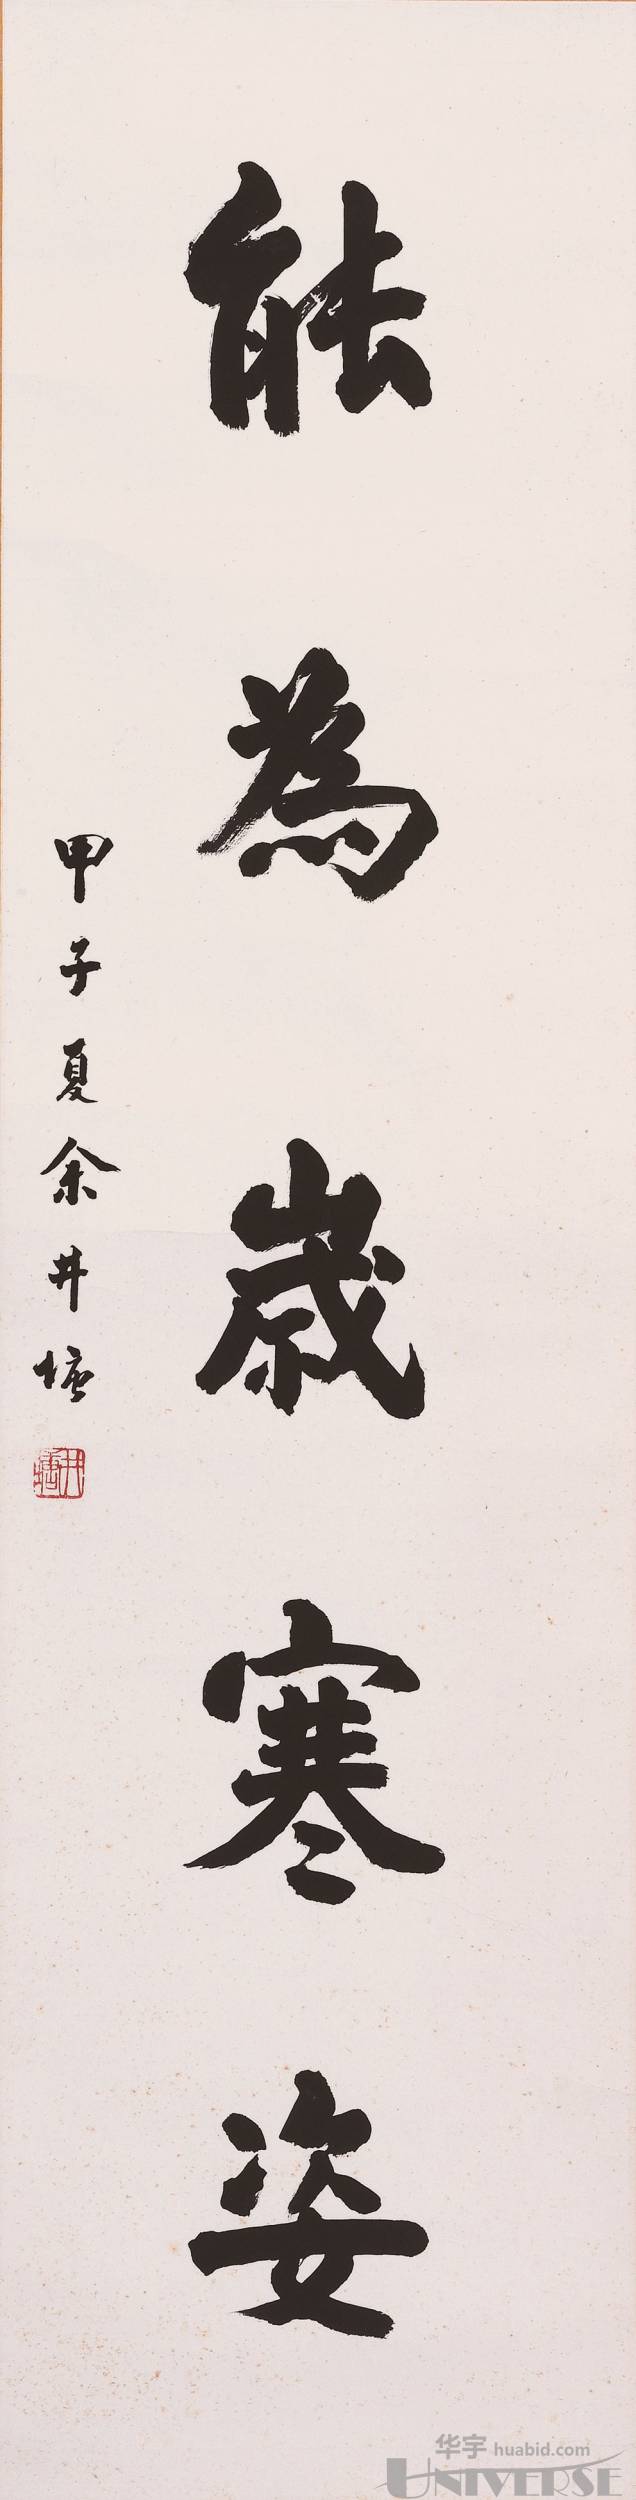 能為歲寒姿
甲子夏余井塘
井塘
华宇 huabid.com
UNIVERSE